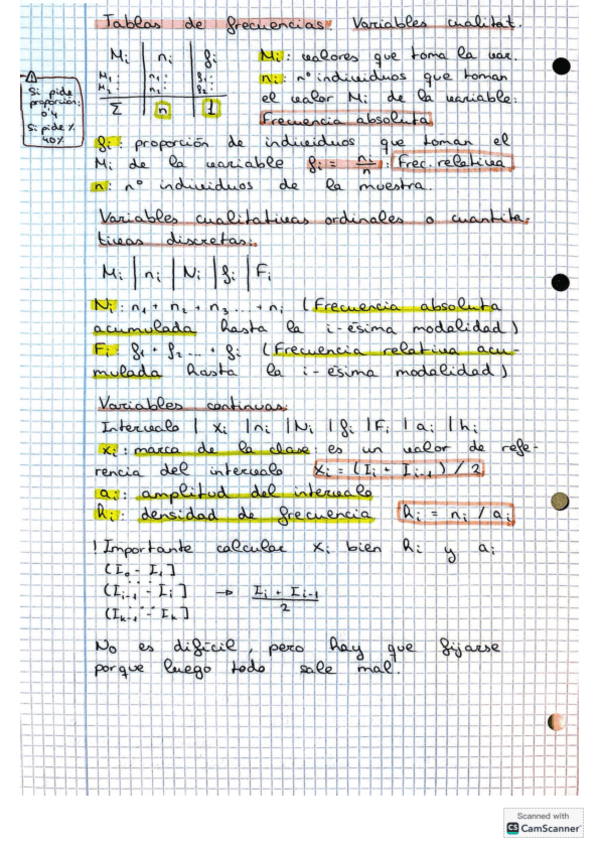 Tablas de frecuencias. Variables cualitat.
Mi | ni | fi
M1 n1: f1:
M2: n2: f2:
Σ | n | 1
Mi: valores que toma la var.
ni: nº individuos que toman
el valor Mi de la variable:
Frecuencia absoluta
⚠
Si pide
proporción:
0'4
Si pide %
40%
fi: proporción de individuos que toman el
Mi de la variable fi = ni/n : Frec. relativa
n: nº individuos de la muestra.
Variables cualitativas ordinales o cuantita-
tivas discretas:
Mi | ni | Ni | fi | Fi
Ni: n1 + n2 + n3 ... + ni (Frecuencia absoluta
acumulada hasta la i-ésima modalidad)
Fi: f1 + f2 ... + fi (Frecuencia relativa acu-
mulada hasta la i-ésima modalidad)
Variables continuas:
Intervalo | xi | ni | Ni | fi | Fi | ai | hi
xi: marca de la clase: es un valor de refe-
rencia del intervalo xi = (Ii + Ii-1) / 2
ai: amplitud del intervalo
hi: densidad de frecuencia hi = ni / ai
! Importante calcular xi bien hi y ai
(I0 - I1]
(Ii-1 - Ii] → Ii + Ii-1 / 2
(Ik-1 - Ik]
No es difícil, pero hay que fijarse
porque luego todo sale mal.
Scanned with
CS CamScanner